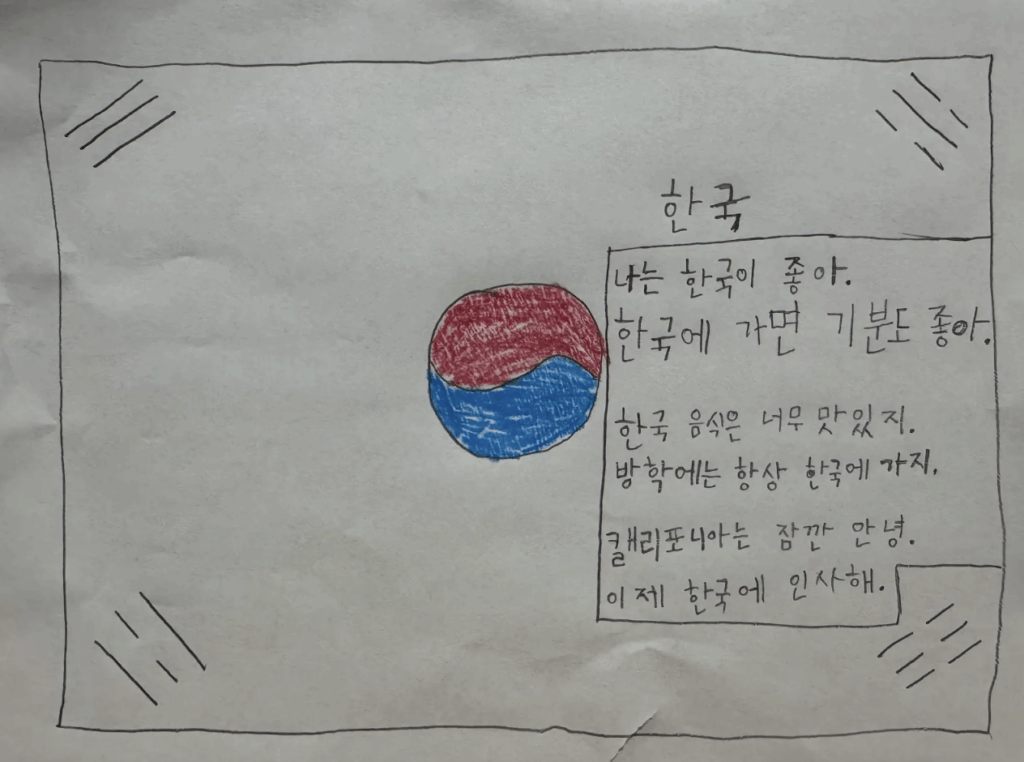 한국
나는 한국이 좋아.
한국에 가면 기분도 좋아.
한국 음식은 너무 맛있지.
방학에는 항상 한국에 가지.
캘리포니아는 잠깐 안녕.
이제 한국에 인사해.